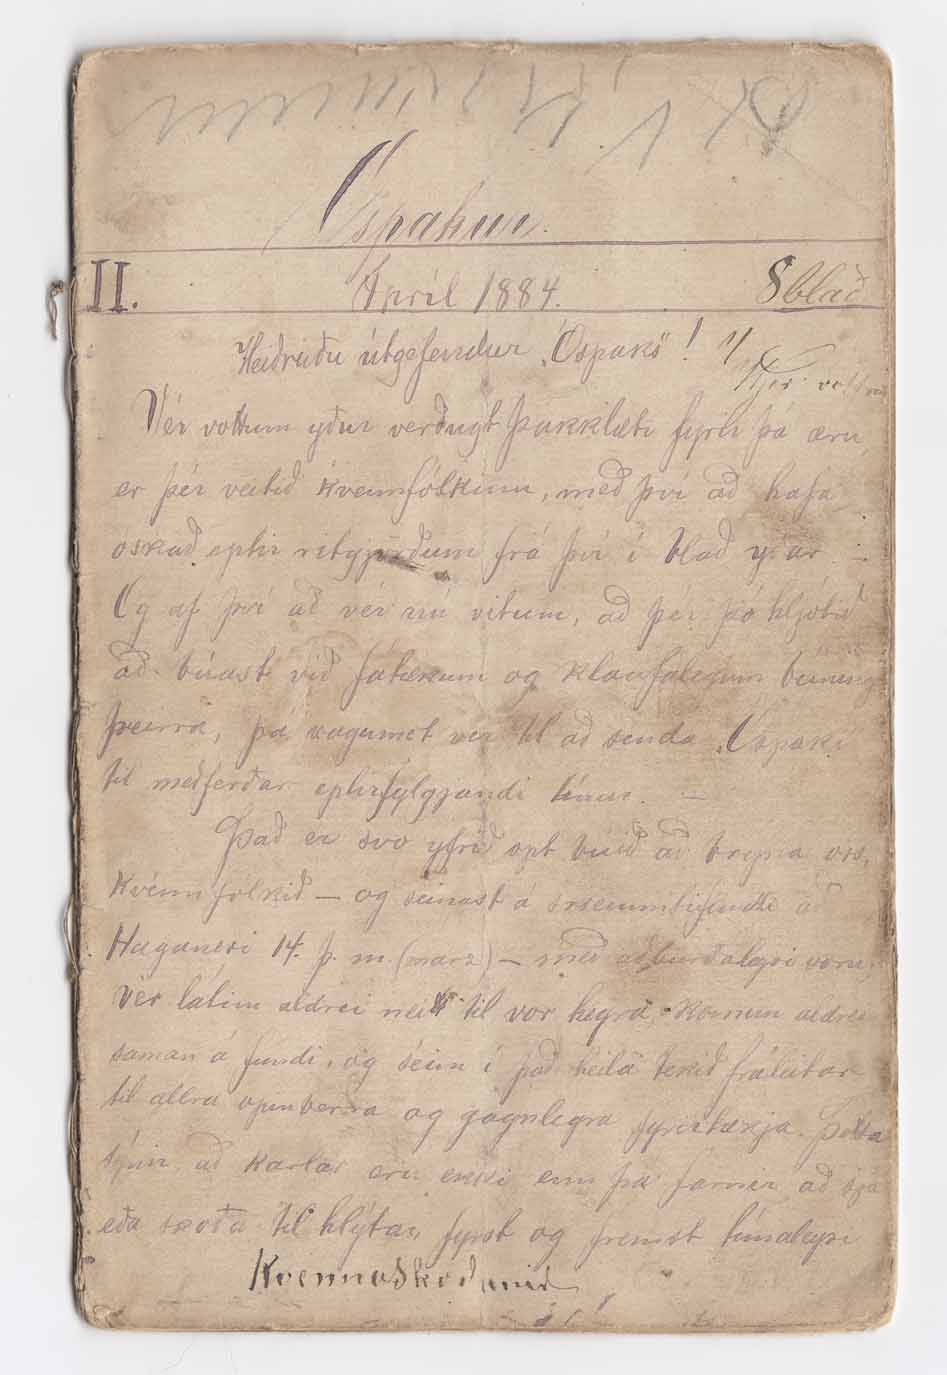 Óspakur.
II. Apríl 1884. 8 blað
Heiðruðu útgefendur „Óspaks“!
Vér vottum yður verðugt þakklæti fyrir þá æru,
er þér veitið kvennfólkinu, með því að hafa
óskað eptir ritgjörðum frá því í blað yðar. –
Og af því að vér nú vitum, að þér þó hljótið
að búast við fátækum og klaufalegum búningi
þeirra, þá vogumst vér til að senda „Óspaki“
til meðferðar eptirfylgjandi línur. –
Það er svo yfrið opt búið að brýna oss,
kvennfólkið – og seinast á skemmtifundi að
Haganesi 14. þ. m. (marz) – með aðburðaleysi voru,
Vér látim aldrei neitt til vor heyra, komum aldrei
saman á fundi, og séum í það heila tekið fráleitar
til allra opinberra og gagnlegra fyrirtækja. Þetta
sýnir, að karlar eru ekki enn þá farnir að sjá
eða skoða til hlýtar, fyrst og fremst tímaleysi
Kvennaskoðanir